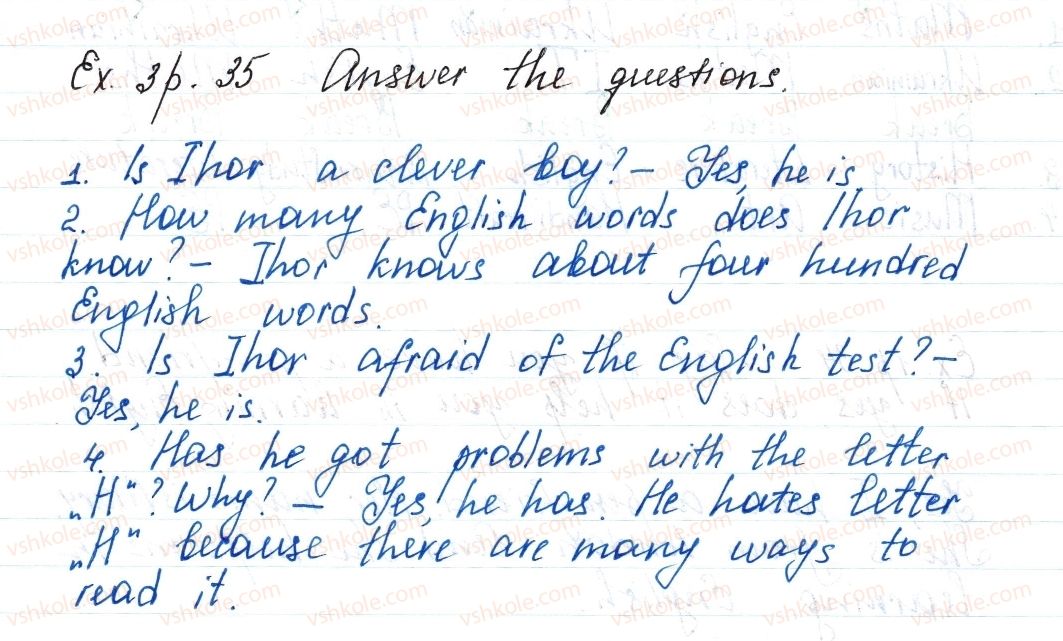 Ex. 3 p. 35 Answer the questions.
1. Is Ihor a clever boy? – Yes, he is.
2. How many English words does Ihor
know? – Ihor knows about four hundred
English words.
3. Is Ihor afraid of the English test? –
Yes, he is.
4. Has he got problems with the letter
„H“? Why? – Yes, he has. He hates letter
„H“ because there are many ways to
read it.
vshkole.com